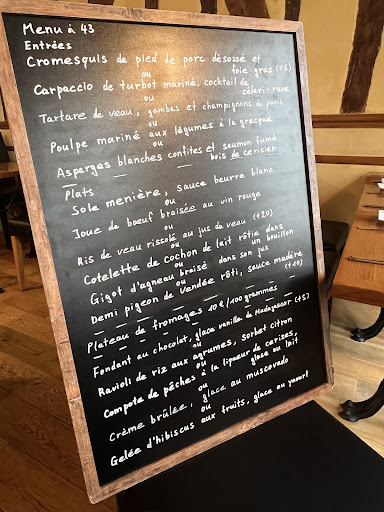 Menu à 43
Entrées
Cromesquis de pied de porc désossé et
ou foie gras (+5)
Carpaccio de turbot mariné, cocktail de
ou céleri-rave
Tartare de veau, gambas et champignons de paris
ou
Poulpe mariné aux légumes à la grecque
ou
Asperges blanches confites et saumon fumé
bois de cerisier
Plats
Sole menière, sauce beurre blanc
ou
Joue de bœuf braisée au vin rouge
ou
Ris de veau rissolé au jus de veau (+20)
ou
Cotelette de cochon de lait rôtie dans
ou un bouillon
Gigot d'agneau braisé dans son jus
ou
Demi pigeon de vendée rôti, sauce madère
(+20)
Plateau de fromages 10€/100grammes
Fondant au chocolat, glace vanille de Madagascar (+5)
ou
Ravioli de riz aux agrumes, sorbet citron
ou
Compote de pêches à la liqueur de cerises,
ou glace au lait
Crème brûlée, glace au muscovado
ou
Gelée d'hibiscus aux fruits, glace au yaourt